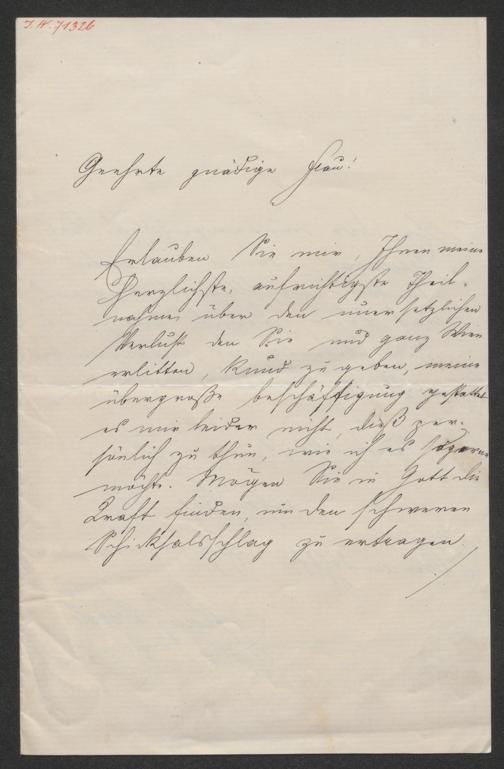 I.N. 71326
Geehrte gnädige Frau!
Erlauben Sie mir, Ihnen meine
herzlichste, aufrichtigste Theil-
nahme über den unersetzlichen
Verlust den Sie und ganz Wien
erlitten, kund zu geben, meine
übergroße beschäffigung gestattet
es mir leider nicht, dieß per-
sönlich zu thun, wie ich es so gerne
möchte. Mögen Sie in Gott die
Kraft finden, um den schweren
Schicksalsschlag zu ertragen.